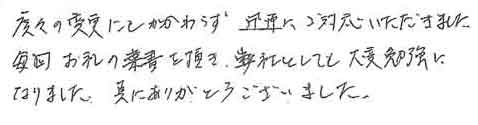 度々の変更にもかかわらず 迅速に ご対応いただきました
毎回 お礼の葉書を頂き、弊社としても 大変勉強に
なりました。真にありがとうございました。